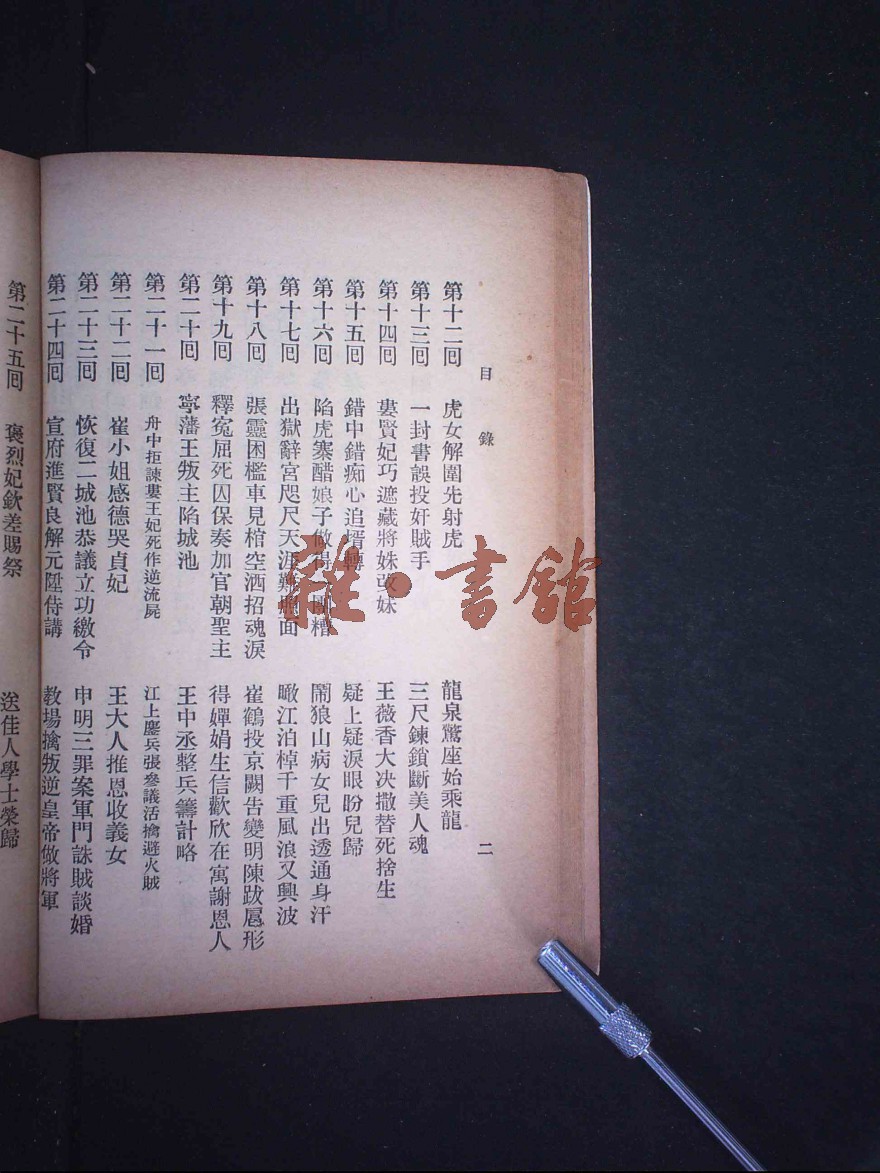 目錄 二
第十二回 虎女解圍先射虎 龍泉驚座始乘龍
第十三回 一封書誤投奸賊手 三尺鍊鎖斷美人魂
第十四回 婁賢妃巧遮藏將姝改妹 王薇香大決撒替死捨生
第十五回 錯中錯痴心追壻轉 疑上疑淚眼盼兒歸
第十六回 陷虎寨醋娘子做得一團糟 鬧狼山病女兒出透通身汗
第十七回 出獄辭宮咫尺天涯難覿面 瞰江泊棹千重風浪又興波
第十八回 張靈困檻車見棺空洒招魂淚 崔鶴投京闕告變明陳跋扈形
第十九回 釋冤屈死囚保奏加官朝聖主 得嬋娟生信歡欣在寓謝恩人
第二十回 寧藩王叛主陷城池 王中丞整兵籌計略
第二十一回 舟中拒諫婁王妃死作逆流屍 江上鏖兵張參議活擒避火賊
第二十二回 崔小姐感德哭貞妃 王大人推恩收義女
第二十三回 恢復二城池恭議立功繳令 申明三罪案軍門誅賊談婚
第二十四回 宣府進賢良解元陞侍講 教場擒叛逆皇帝做將軍
第二十五回 褒烈妃欽差賜祭 送佳人學士榮歸
雜·書館